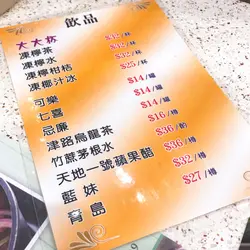 飲品
大大杯
凍檸茶 $32/杯
凍檸水 $32/杯
凍檸柑桔 $32/杯
凍椰汁冰 $25/杯
可樂 $14/罐
七喜 $14/罐
忌廉 $14/罐
津路烏龍茶 $16/樽
竹蔗茅根水 $36/
天地一號蘋果醋 $36/樽
藍妹 $32/樽
青島 $27/樽